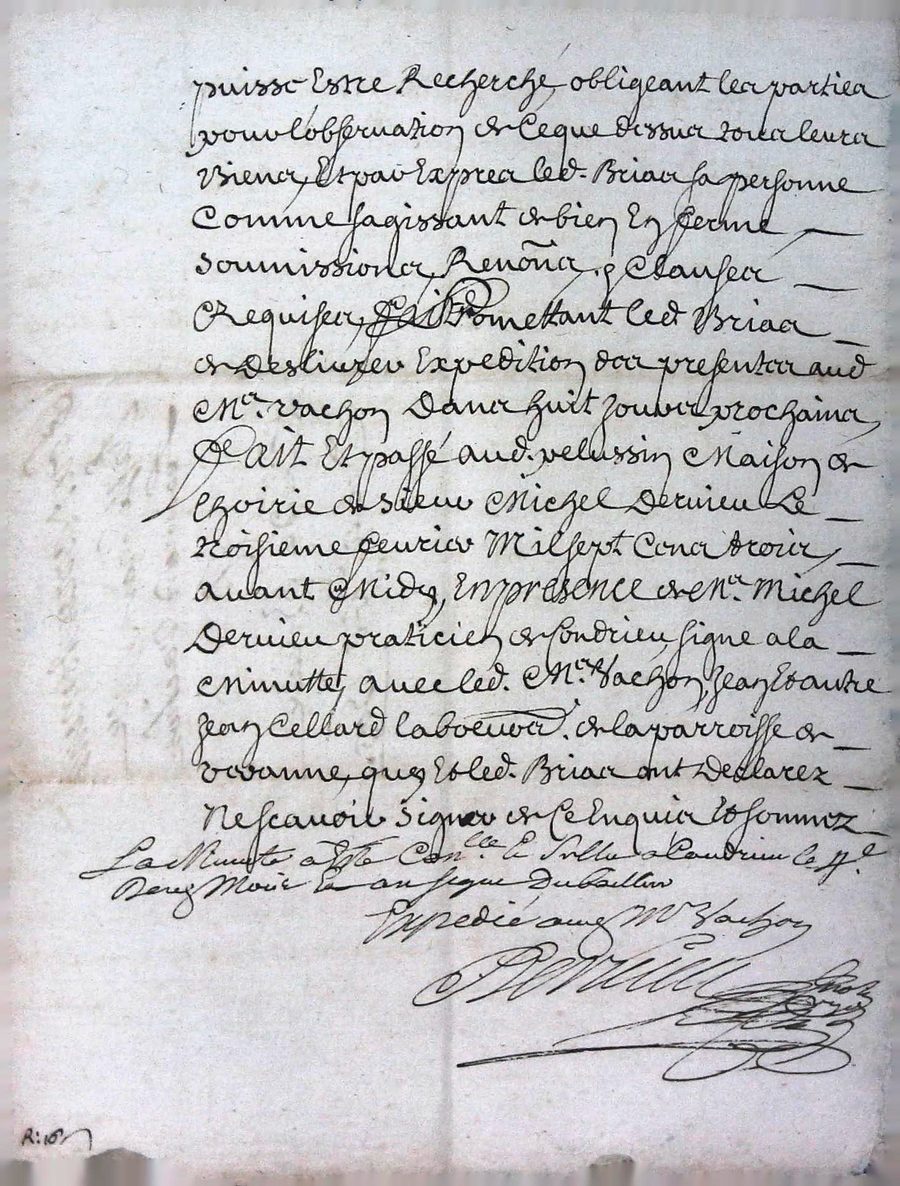 puisse Estre Recherché obligeant les parties
pour l'observation de Ceque dessus tous leurs
Biens, Et par Exprez led. Brias sa personne
Comme sagissant de bien En ferme
Soumissions, Renõns, & Clauses
Requises, promettant led. Brias
de Deslivrer Expedition des presentes aud
Mr. vachon Dans huit Jours prochains,
fait Et passé aud. pelussin Maison de
hoirie de sieur Michel Dervieu Le
troisieme feurier Mil sept Cens trois,
auant Midy, En presence de Mr. Michel
Dervieu praticien de Condrieu, signe a la
Minutte, avec led. Mr. Vachon, Jean Et autre
Jean Cellard laboeurs. de la parroisse de
que Et led. Brias ont Declarez
Ne scavoir Signer de Ce Enquis Et sommez
La Minute a Este Conlle. Et a Condrieu le
Mois Et an signe
Expedié aud Mr Vachon
Dervieu
R: 16